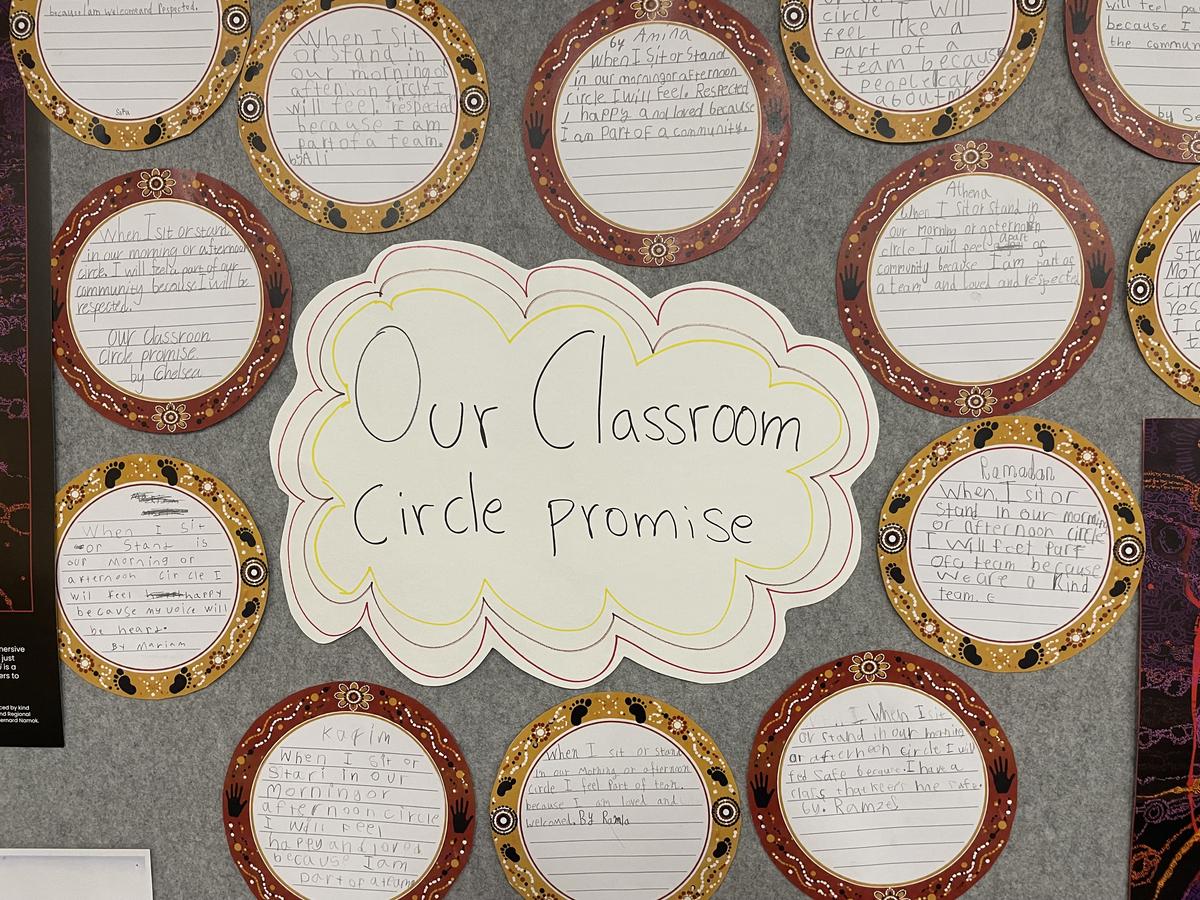 because I am welcome and Respected.
Safa
When I Sit
or stand in
our morning or
afternoon circle I
will feel respected
because I am
part of a team.
by Ali
by Amina
When I Sit or Stand
in our morning or afternoon
circle I will feel. Respected
, happy and loved because
I am Part OF a community.
circle I will
feel like a
part of a
team because
people care
about me
will feel
because I
the commun
by Se
When I sit or stand
in our morning or afternoon
circle. I will feel a part of our
community because I will be
respected.
Our Classroon
Circle promise
by Chelsea
Athena
When I sit or stand in
our Morning or afternoon
circle I will feel apart of
community because I am part of
a team and loved and respected
W
Sta
Mor
Circ
res
I
t
Our Classroom
Circle promise
When I Sit
or Stand is
our Morning or
afternoon Circle I
will feel happy
because my voice will
be heart.
By Mariam
Ramadan
When I sit or
Stand In our morning
or afternoon circle
I Will feel Part
Of a team because
We are a Kind
team.
Karim
When I sit or
Stari in our
Morning or
afternoon circle
I Will feel
happy and loved
because I am
part of a team
When I sit or stand
in our Morning or afternoon
Circle I feel Part of team.
because I am loved and
welcomed. By Ramla
I When I sit
or stand in our morning
or afternoon circle I will
feel Safe because. I have a
class that keers me safe.
by. Ramzel
mersive
just
is a
ers to
ced by kind
nd Regional
ernard Namok.